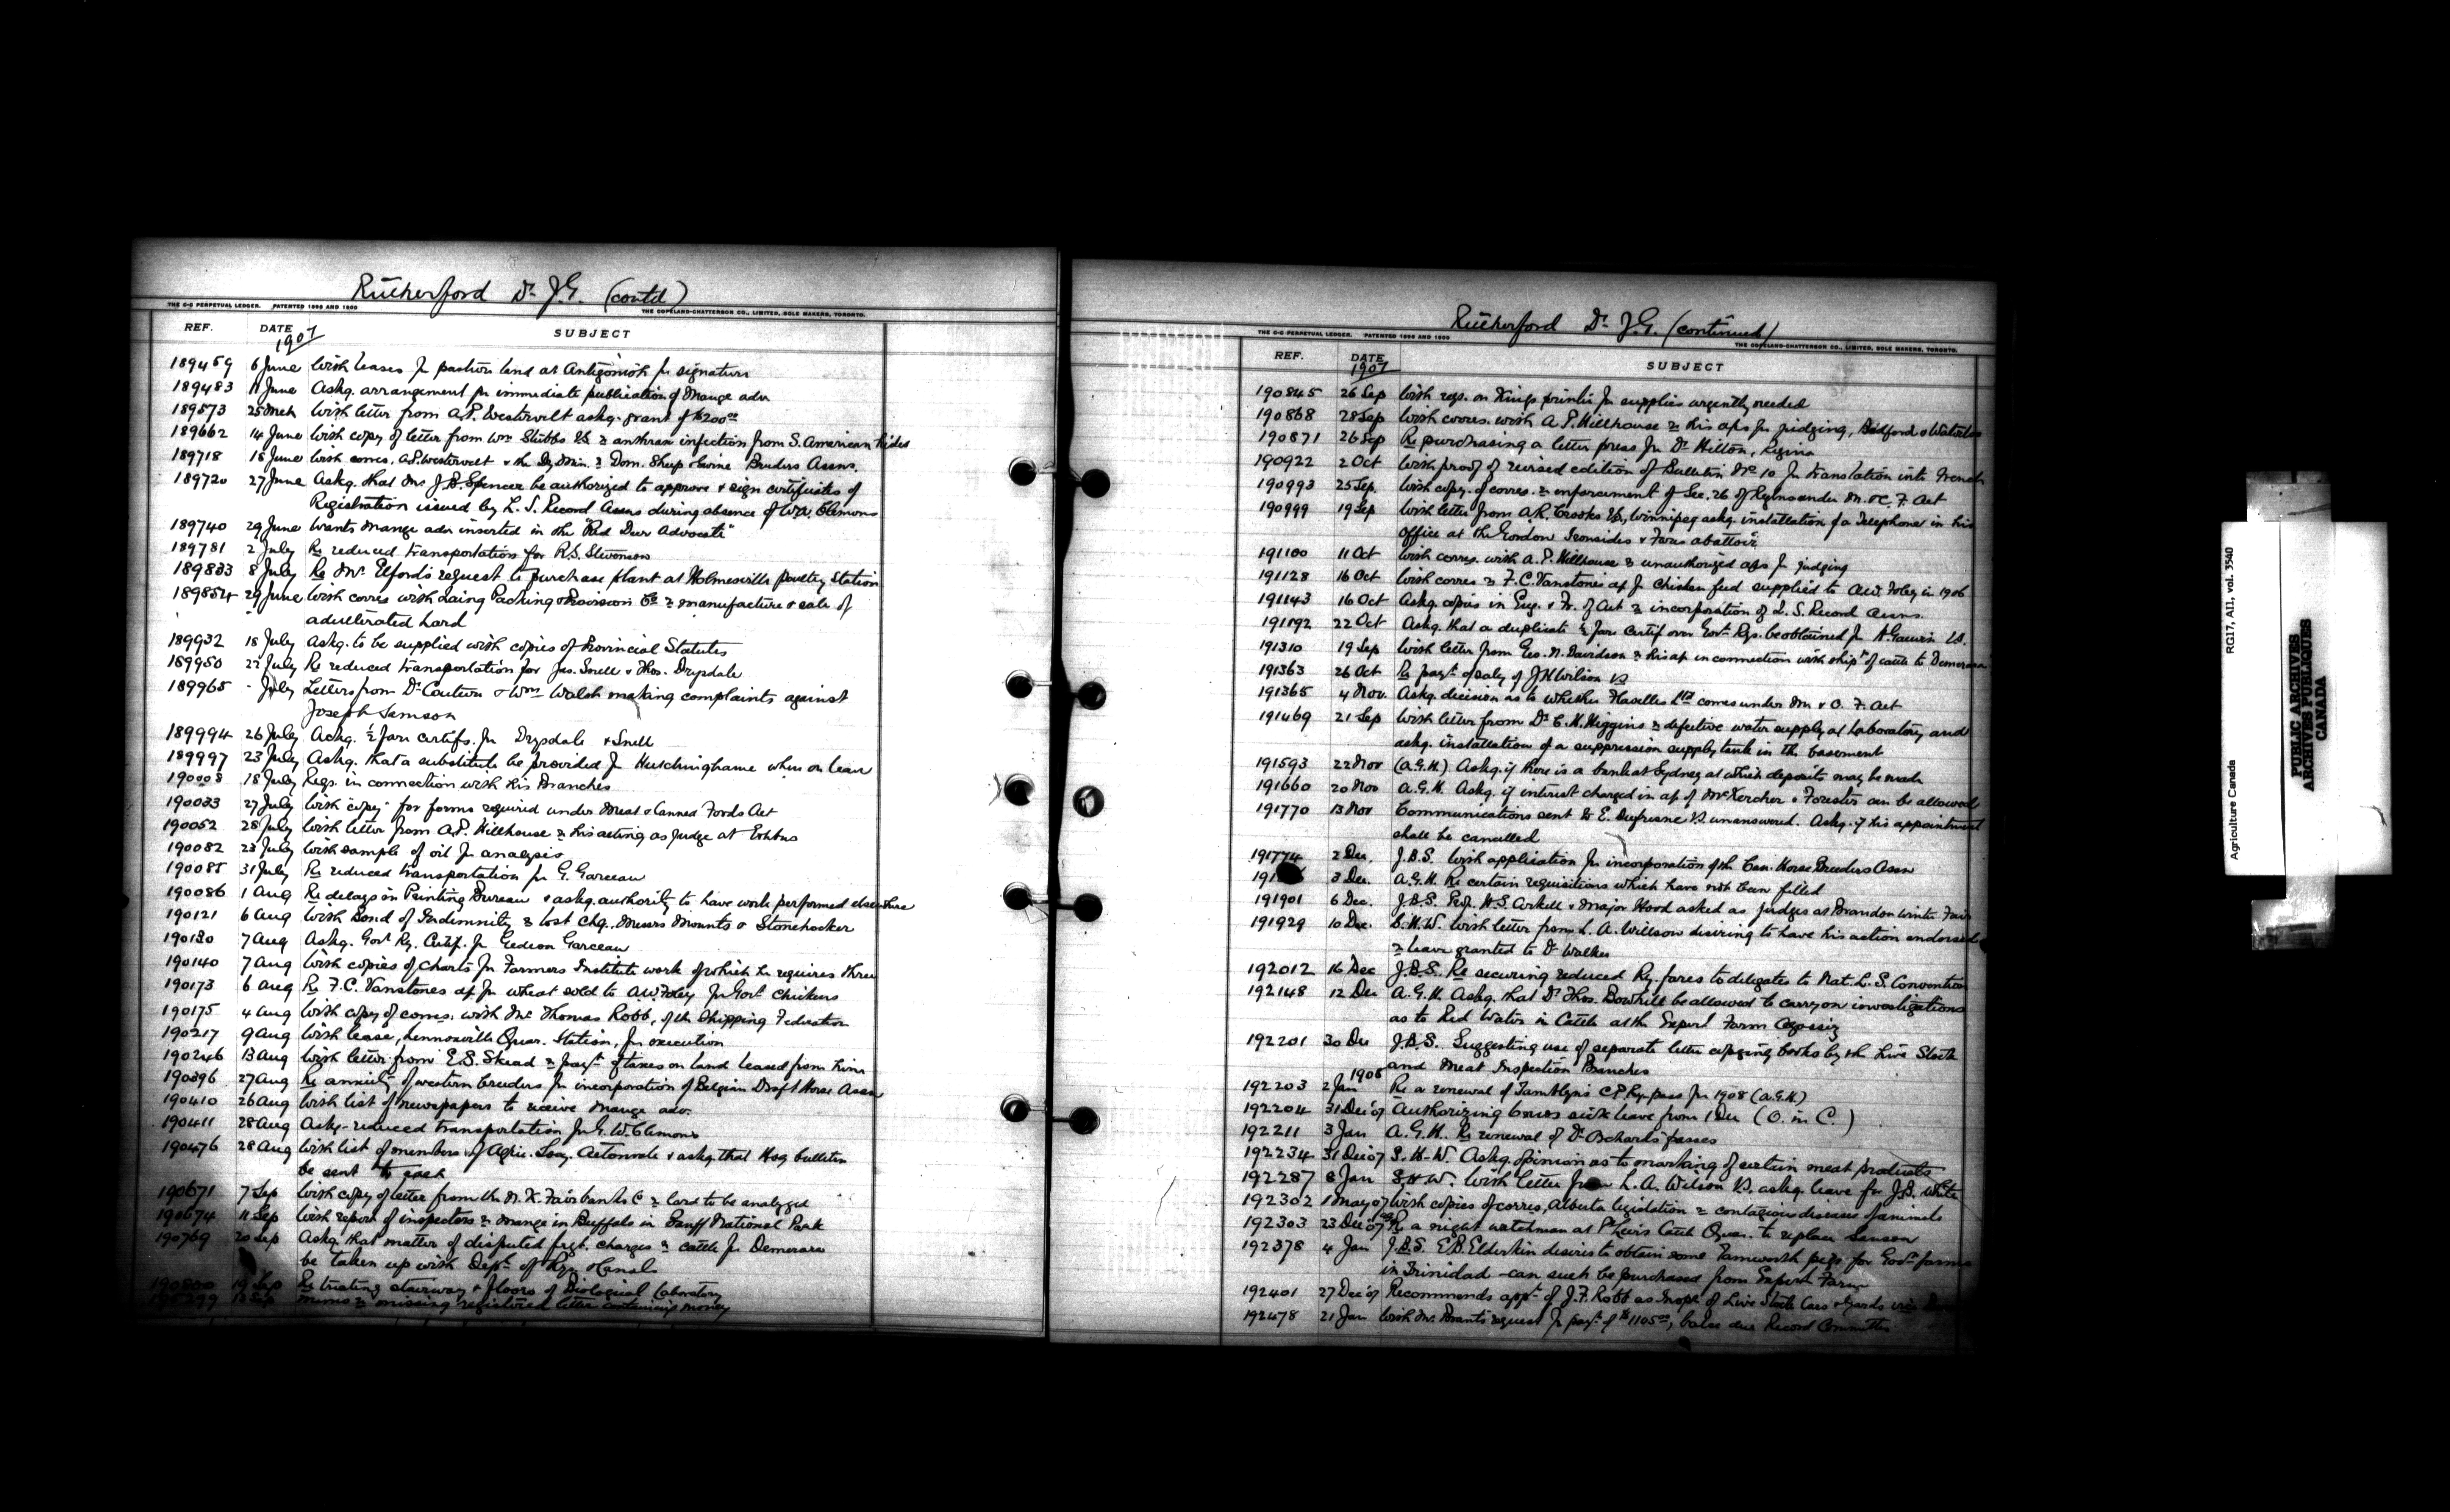 Rutherford Dr. J.G. (contd)
THE C-C PERPETUAL LEDGER. PATENTED 1896 AND 1899
THE COPELAND-CHATTERSON CO., LIMITED, SOLE MAKERS, TORONTO.
REF. DATE SUBJECT
1907
189459 6 June With leases for pasture land at Antigonish for signature
189483 11 June Askg. arrangement for immediate publication of Mange adv.
189573 25 Mch With letter from A.P. Westervelt askg. grant of $200.00
189662 14 June With copy of letter from Wm Stubbs VS re anthrax infection from S. American hides
189718 18 June With corres. A.P. Westervelt & the Dy Min. re Dom. Sheep & Swine Breeders Assns.
189720 27 June Askg. that Mr J.B. Spencer be authorized to approve & sign certificates of
Registration issued by L.S. Record Assns during absence of W.A. Clemons
189740 29 June Wants Mange adv inserted in the "Red Deer Advocate"
189781 2 July Re reduced transportation for R.S. Stevenson
189833 8 July Re Mr. Elford's request to purchase plant at Holmesville Poultry Station
189854 29 June With corres with Laing Packing & Provision Co re manufacture & sale of
adulterated Lard
189932 18 July Askg. to be supplied with copies of Provincial Statutes
189950 22 July Re reduced transportation for Jas. Snell & Thos. Drysdale
189965 - July Letters from Dr Couture & Wm Walsh making complaints against
Joseph Samson
189994 26 July Askg. ½ fare certifs. for Drysdale & Snell
189997 23 July Askg. that a substitute be provided for Hutchinghame when on leave
190008 18 July Regs. in connection with his Branches
190033 27 July With copy for forms required under Meat & Canned Foods Act
190052 28 July With letter from A.P. Hillhouse re his acting as judge at Exhbns
190082 23 July With sample of oil for analysis
190085 31 July Re reduced transportation for G. Garceau
190086 1 Aug Re delays in Printing Bureau & askg. authority to have work performed elsewhere
190121 6 Aug With Bond of Indemnity re lost chq. Messrs Mounts & Stonehocker
190130 7 Aug Askg. Govt Ry. Certif. for Gedeon Garceau
190140 7 Aug With copies of Charts for Farmers Institute work of which he requires three
190173 6 Aug Re F.C. Vanstone's ap for wheat sold to A.W. Foley for Govt chickens
190175 4 Aug With copy of corres. with Mr Thomas Robb, of the Shipping Federation
190217 9 Aug With lease, Lennoxville Quar. Station, for execution
190246 13 Aug With letter from E.S. Skead re payt of taxes on land leased from him
190396 27 Aug Re anxiety of western breeders for incorporation of Belgian Draft Horse Assn
190410 26 Aug With list of newspapers to receive Mange adv.
190411 28 Aug Askg. reduced transportation for G.W. Clemons
190476 28 Aug With list of members of Agric. Socy. Actonvale & askg. that Hog bulletin
be sent to each
190671 7 Sep With copy of letter from the N.K. Fairbanks Co re lard to be analyzed
190674 11 Sep With report of inspectors re mange in Buffalo in Banff National Park
190769 20 Sep Askg. that matter of disputed frgt. charges re cattle for Demerara
be taken up with Dept. of Rys & Canals
190800 19 Sep Re treating stairway & floors of Biological Laboratory
12 Sep Memo re missing registered letter containing money
Rutherford Dr. J.G. (continued)
THE C-C PERPETUAL LEDGER. PATENTED 1896 AND 1899
THE COPELAND-CHATTERSON CO., LIMITED, SOLE MAKERS, TORONTO.
REF. DATE SUBJECT
1907
190845 26 Sep With reqs. on Kings printer for supplies urgently needed
190868 28 Sep With corres. with A.P. Hillhouse re his aps for judging, Bedford & Waterloo
190871 26 Sep Re purchasing a letter press for Dr Hilton, Regina
190922 2 Oct With proof of revised edition of Bulletin No 10 for translation into French
190993 25 Sep. With copy of corres. re enforcement of Sec. 26 of Regns under M. & C. F. Act
190999 19 Sep With letter from A.R. Crooks VS, Winnipeg askg. installation of a Telephone in his
office at the Gordon Ironsides & Fares abattoir
191100 11 Oct With corres. with A.P. Hillhouse re unauthorized aps for judging
191128 16 Oct With corres re F.C. Vanstone's ap for Chicken feed supplied to A.W. Foley in 1906
191143 16 Oct Askg. copies in Eng. & Fr. of Act re incorporation of L.S. Record Assns.
191192 22 Oct Askg. that a duplicate ½ fare certif over Govt Rys. be obtained for A. Gauvin VS.
191310 19 Sep With letter from Geo. N. Davidson re his ap in connection with shipt of cattle to Demerara
191363 26 Oct Re payt of saly of J.H. Wilson VS
191365 4 Nov. Askg. decision as to whether Flavelles Ltd comes under M. & C. F. Act
191469 21 Sep With letter from Dr C.H. Higgins re defective water supply at Laboratory and
askg. installation of a suppression supply tank in the basement
191593 22 Nov (A.G.H.) Askg. if there is a bank at Sydney at which deposits may be made
191660 20 Nov A.G.H. Askg. if interest charged in ap of McKercher & Forester can be allowed
191770 13 Nov Communications sent to E. Dufresne VS unanswered. Askg. if his appointment
shall be cancelled
191774 2 Dec. J.B.S. With application for incorporation of the Can. Horse Breeders Assn
191 3 Dec. A.G.H. Re certain requisitions which have not been filled
191901 6 Dec. J.B.S. Prof. H.S. Arkell & Major Hood asked as judges at Brandon Winter Fair
191929 10 Dec. C.H.W. With letter from L.A. Willson desiring to have his action endorsed
re leave granted to Dr Walker
192012 16 Dec J.B.S. Re securing reduced Ry. fares to delegates to Nat. L.S. Convention
192148 12 Dec A.G.H. Askg. that Dr Thos. Bowhill be allowed to carry on investigations
as to Red Water in Cattle at the Experl Farm Agassiz
192201 30 Dec J.B.S. Suggesting use of separate letter copying books by the Live Stock
and Meat Inspection Branches
1908
192203 2 Jan Re a renewal of Tamblyn's C.P.Ry. pass for 1908 (A.G.H.)
192204 31 Dec '07 Authorizing 6 mos sick leave from 1 Dec (O. in C.)
192211 3 Jan A.G.H. Re renewal of Dr Ochard's passes
192234 31 Dec 07 C.H.W. Askg. opinion as to marking of certain meat products
192287 8 Jan C.H.W. With letter from L.A. Wilson VS. askg. leave for J.B. White
192302 1 May 07 With copies of corres, Alberta legislation re contagious diseases of animals
192303 23 Dec '07 Re a night watchman at Pt Levis Cattle Quar. to replace Samson
192378 4 Jan J.B.S. E.B. Elderkin desires to obtain some Tamworth pigs for Govt farms
in Trinidad - can such be purchased from Experl Farm
192401 27 Dec '07 Recommends appt. of J.F. Robb as Inspr of Live Stock Cars & Yards vice
192478 21 Jan With Mr. Brant's request for payt of $1105.00, balce due Record Committee
RG17, AI1, vol. 3540
Agriculture Canada
PUBLIC ARCHIVES
ARCHIVES PUBLIQUES
CANADA